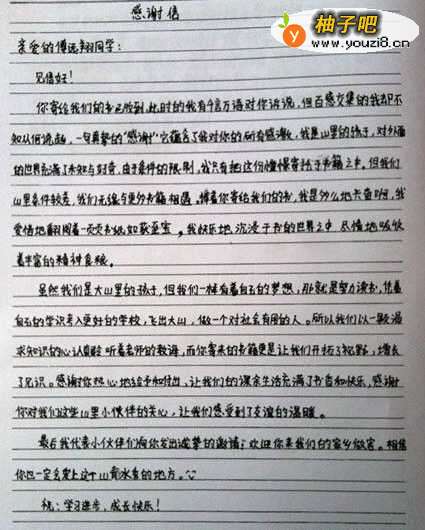 柚子吧
www.youzi8.cn
感谢信
亲爱的傅远翔同学:
见信好!
你寄给我们的书已收到,此时的我有千言万语对你诉说,但百感交集的我却不
知从何说起,一句真挚的“感谢”它蕴含了我对你的所有感激,我是山里的孩子,对外面
的世界充满了未知与好奇,由于条件的限制,我只有把这份憧憬寄托于书籍之中。但我们
山里条件较差,我们无缘与更多书籍相遇。捧着你寄给我们的书,我是多么地兴奋啊,我
爱惜地翻阅着一页页书纸如获至宝。我快乐地沉浸于书的世界之中 尽情地吸饮
着丰富的精神食粮。
虽然我们是大山里的孩子,但我们一样有着自己的梦想,那就是努力读书,凭着
自己的学识考入更好的学校,飞出大山,做一个对社会有用的人。所以我们以一颗渴
求知识的心认真聆听着老师的教诲,而你寄来的书籍更是让我们开拓了视野,增长
了见识。感谢你热心地给予和付出,让我们的课余生活充满了书香和快乐,感谢
你对我们这些山里小伙伴的关心,让我们感受到了友谊的温暖。
最后我代表小伙伴们向你发出诚挚的邀请:欢迎你来我们的家乡做客。相信
你也一定会爱上这个山清水秀的地方。
祝:学习进步,成长快乐!